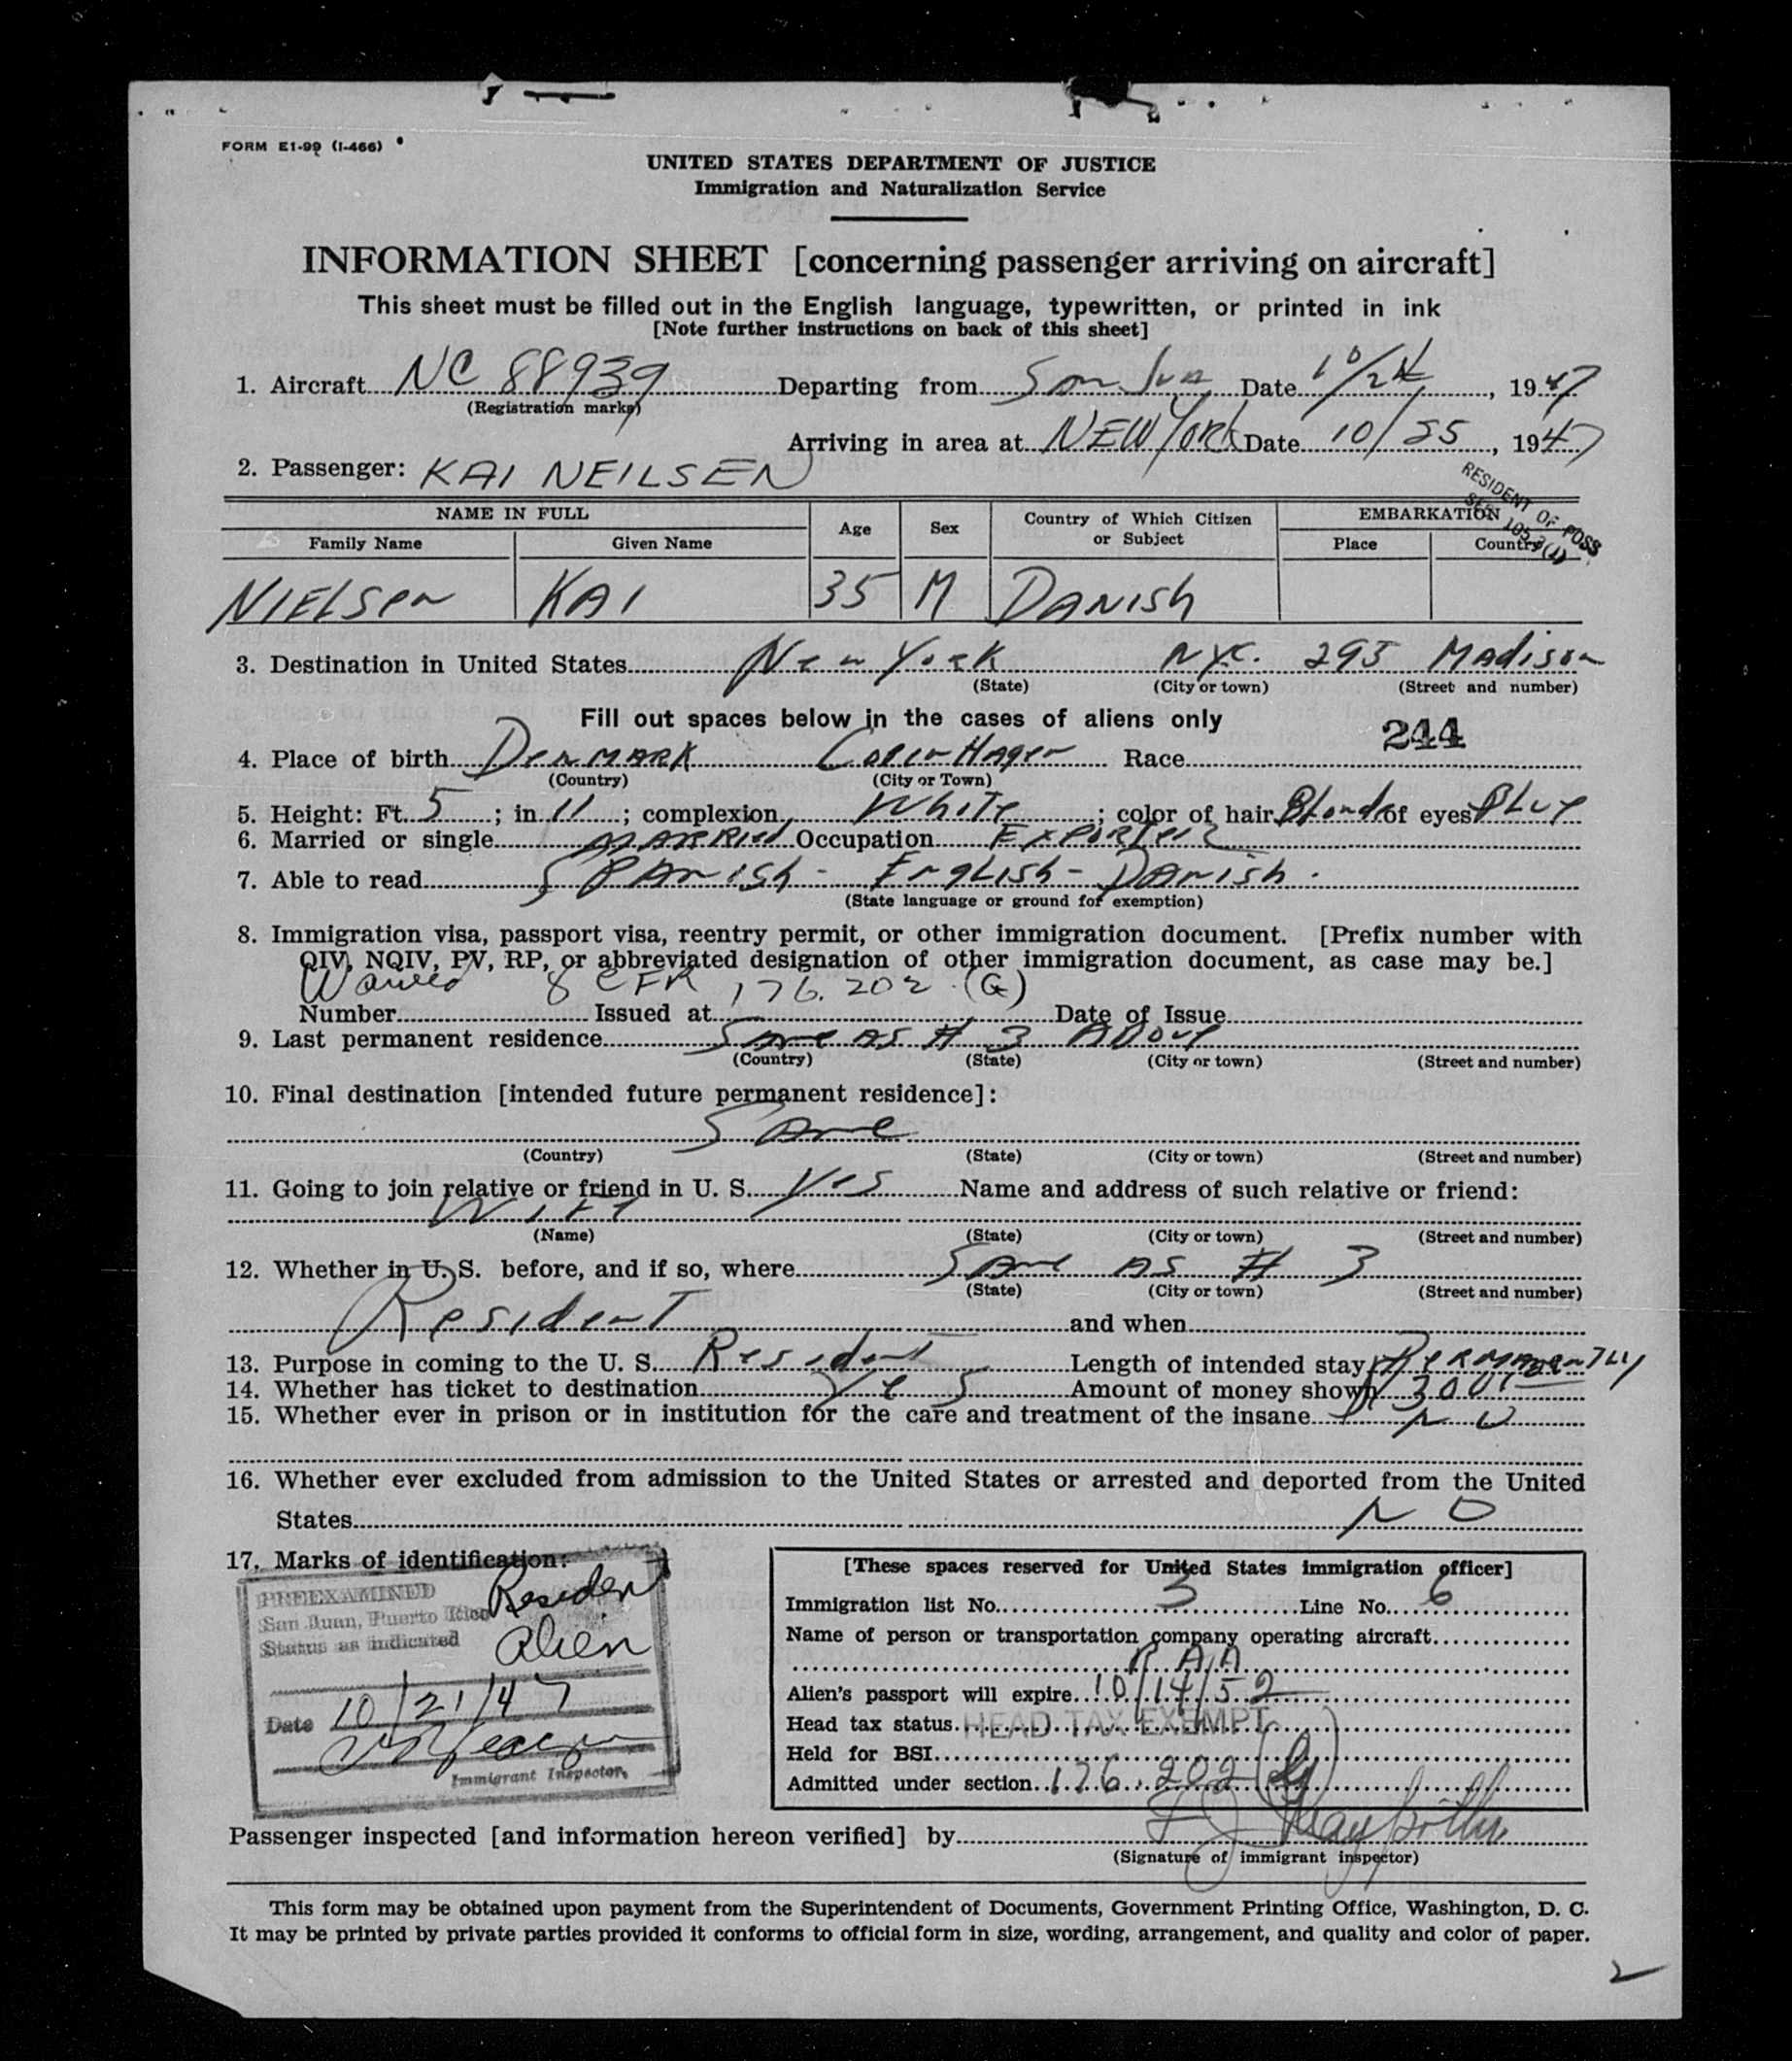 FORM E1-99 (I-466)
UNITED STATES DEPARTMENT OF JUSTICE
Immigration and Naturalization Service
INFORMATION SHEET [concerning passenger arriving on aircraft]
This sheet must be filled out in the English language, typewritten, or printed in ink
[Note further instructions on back of this sheet]
1. Aircraft NC 88939 Departing from San Jua Date 10/24, 1947
(Registration marks)
Arriving in area at NEW York Date 10/25, 1947
2. Passenger: KAI NEILSEN
RESIDENT OF POSS
SEC 105.3(1)
NAME IN FULL Age Sex Country of Which Citizen or Subject EMBARKATION
Family Name Given Name Place Country
NIELSen KAI 35 M DANISh
3. Destination in United States New York NYC. 293 Madison
(State) (City or town) (Street and number)
Fill out spaces below in the cases of aliens only
244
4. Place of birth DenMARK CopenHagen Race
(Country) (City or Town)
5. Height: Ft. 5; in. 11; complexion White; color of hair Blond of eyes BLue
6. Married or single MARRied Occupation EXPORTer
7. Able to read SPAnish - EngLish - DAnish.
(State language or ground for exemption)
8. Immigration visa, passport visa, reentry permit, or other immigration document. [Prefix number with
QIV, NQIV, PV, RP, or abbreviated designation of other immigration document, as case may be.]
Waived 8 CFR 176.202 (G)
Number Issued at Date of Issue
9. Last permanent residence Same AS # 3 ABove
(Country) (State) (City or town) (Street and number)
10. Final destination [intended future permanent residence]:
Same
(Country) (State) (City or town) (Street and number)
11. Going to join relative or friend in U. S. Yes Name and address of such relative or friend:
Wife
(Name) (State) (City or town) (Street and number)
12. Whether in U. S. before, and if so, where Same AS # 3
(State) (City or town) (Street and number)
Resident and when
13. Purpose in coming to the U. S. Resident Length of intended stay PeRMAnenTLy
14. Whether has ticket to destination Yes Amount of money shown
15. Whether ever in prison or in institution for the care and treatment of the insane No
16. Whether ever excluded from admission to the United States or arrested and deported from the United
States No
17. Marks of identification:
PREEXAMINED
San Juan, Puerto Rico
Status as indicated
Resident
alien
Date 10/21/47
Immigrant Inspector.
[These spaces reserved for United States immigration officer]
Immigration list No. 3 Line No. 6
Name of person or transportation company operating aircraft
PAA
Alien's passport will expire 10/14/52
Head tax status HEAD TAX EXEMPT
Held for BSI
Admitted under section 176.202 (G)
Passenger inspected [and information hereon verified] by
(Signature of immigrant inspector)
This form may be obtained upon payment from the Superintendent of Documents, Government Printing Office, Washington, D. C.
It may be printed by private parties provided it conforms to official form in size, wording, arrangement, and quality and color of paper.
2